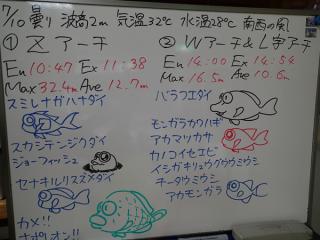 7/10 曇り 波高2m 気温32℃ 水温28℃ 南西の風
① Zアーチ
En 10:47 Ex 11:38
Max 32.4m Ave 12.7m
スミレナガハナダイ
スカシテンジクダイ
ジョーフィッシュ
セナキルリスズメダイ
カメ!!
ナポレオン!!
② Wアーチ&L字アーチ
En 14:00 Ex 14:54
Max 16.5m Ave 10.6m
バラフエダイ
モンガラカワハギ
アカマツカサ
カノコイセエビ
イシガキリュウグウウミウシ
チータウミウシ
アカモンガラ